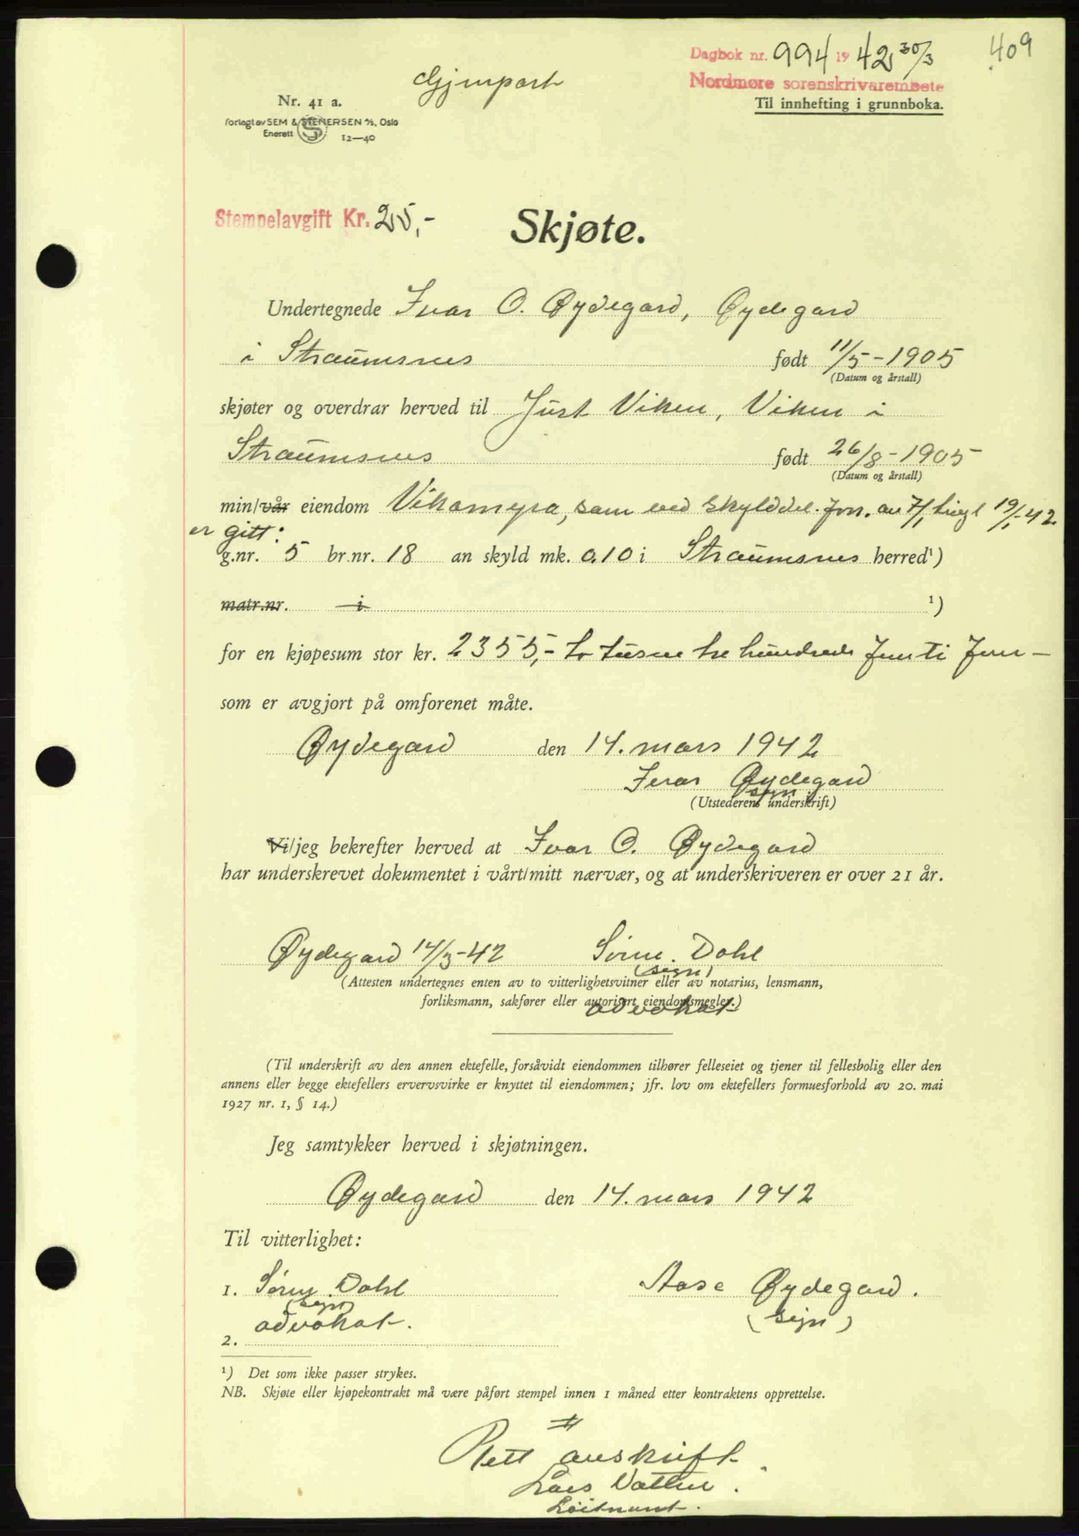 409
Dagbok nr. 994 1942 30/3
Nordmøre sorenskrivarembete
Til innhefting i grunnboka.
Gjenpart
Nr. 41 a.
Forlagt av SEM & STENERSEN A/S, Oslo
Enerett 12—40
Stempelavgift Kr. 25,-
Skjøte.
Undertegnede Ivar O. Øydegard, Øydegard
i Straumsnes født 11/5-1905
(Datum og årstall)
skjøter og overdrar herved til Just Viken, Viken i
Straumsnes født 26/8-1905
(Datum og årstall)
min/vår eiendom Vikamyra, som ved skylddel. forr. av 7/1 tingl 19/1-42
er gitt:
g.nr. 5 br.nr. 18 av skyld mk. 0.10 i Straumsnes herred¹)
matr.nr. i ¹)
for en kjøpesum stor kr. 2355,- to tusen tre hundrede femti fem —
som er avgjort på omforenet måte.
Øydegard den 14. mars 1942
Ivar Øydegard
sign
(Utstederens underskrift)
Vi/jeg bekrefter herved at Ivar O. Øydegard
har underskrevet dokumentet i vårt/mitt nærvær, og at underskriveren er over 21 år.
Øydegard 14/3-42 Dahl
(sign)
(Attesten undertegnes enten av to vitterlighetsvitner eller av notarius, lensmann,
forliksmann, sakfører eller autorisert eiendomsmegler.)
advokat
(Til underskrift av den annen ektefelle, forsåvidt eiendommen tilhører felleseiet og tjener til fellesbolig eller den
annens eller begge ektefellers ervervsvirke er knyttet til eiendommen; jfr. lov om ektefellers formuesforhold av 20. mai
1927 nr. 1, § 14.)
Jeg samtykker herved i skjøtningen.
Øydegard den 14. mars 1942
Til vitterlighet:
1. Dahl Aase Øydegard.
(sign) (sign)
advokat.
2.
¹) Det som ikke passer strykes.
NB. Skjøte eller kjøpekontrakt må være påført stempel innen 1 måned etter kontraktens opprettelse.
Rett avskrift
Lars
Løitnant.